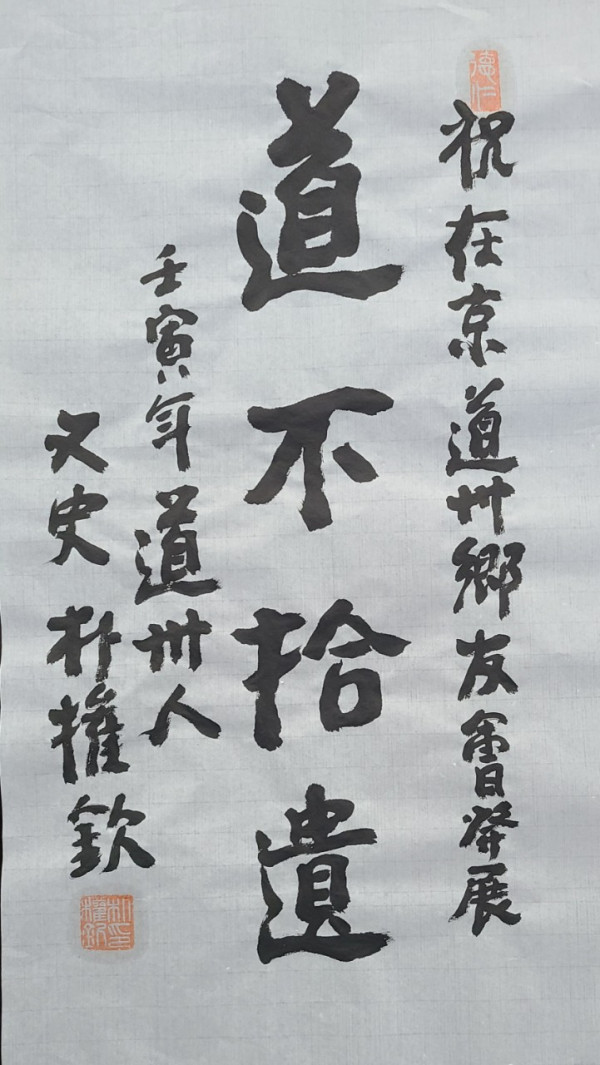 德仁
祝在京道州鄉友會發展
道不拾遺
壬寅年道州人
文史朴權欽
朴權欽印